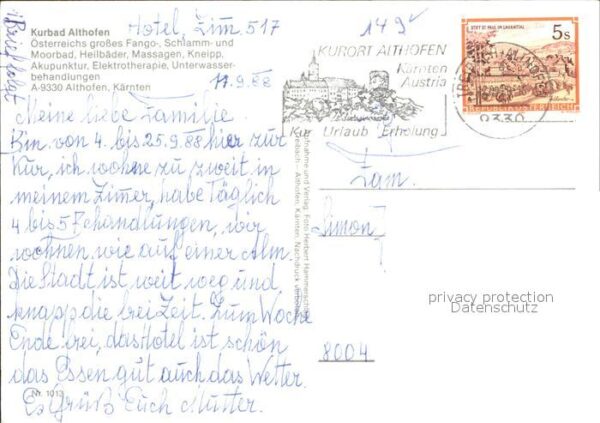 Hotel, Zim 517
Kurbad Althofen
Österreichs großes Fango-, Schlamm- und
Moorbad, Heilbäder, Massagen, Kneipp,
Akupunktur, Elektrotherapie, Unterwasser-
behandlungen
A-9330 Althofen, Kärnten
11.9.88
Meine liebe Familie.
Bin von 4. bis 25.9.88 hier zur
Kur, ich wohne zu zweit in
meinem Zimer, habe Täglich
4 bis 5 Fehandlungen, wir
wohnen wie auf einer Alm.
Die Stadt ist weit weg und
knapp die frei Zeit. Zum Woche
Ende frei, das Hotel ist schön
das Essen gut auch das Wetter.
Es Grüß Euch Mutter.
Nr. 1013
149
KURORT ALTHOFEN
Kärnten
Austria
Kur Urlaub Erholung
9330
STIFT ST. PAUL IM LAVANTTAL
5 S
REPUBLIK ÖSTERREICH
Fam.
Simon
8004
privacy protection
Datenschutz